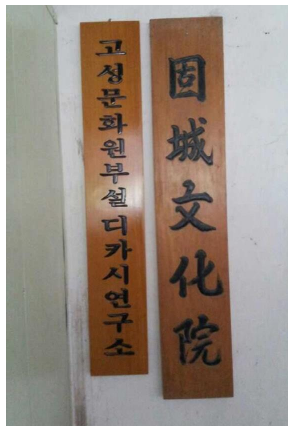 고성문화원부설디카시연구소
固城文化院